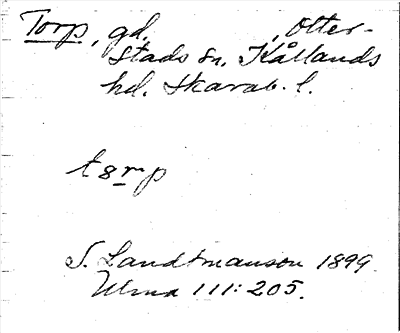 Torp, gd, , Otter-
stads sn, Kållands
hd. Skarab. l.
t8rp
S. Landtmanson 1899.
Ulma 111:205.